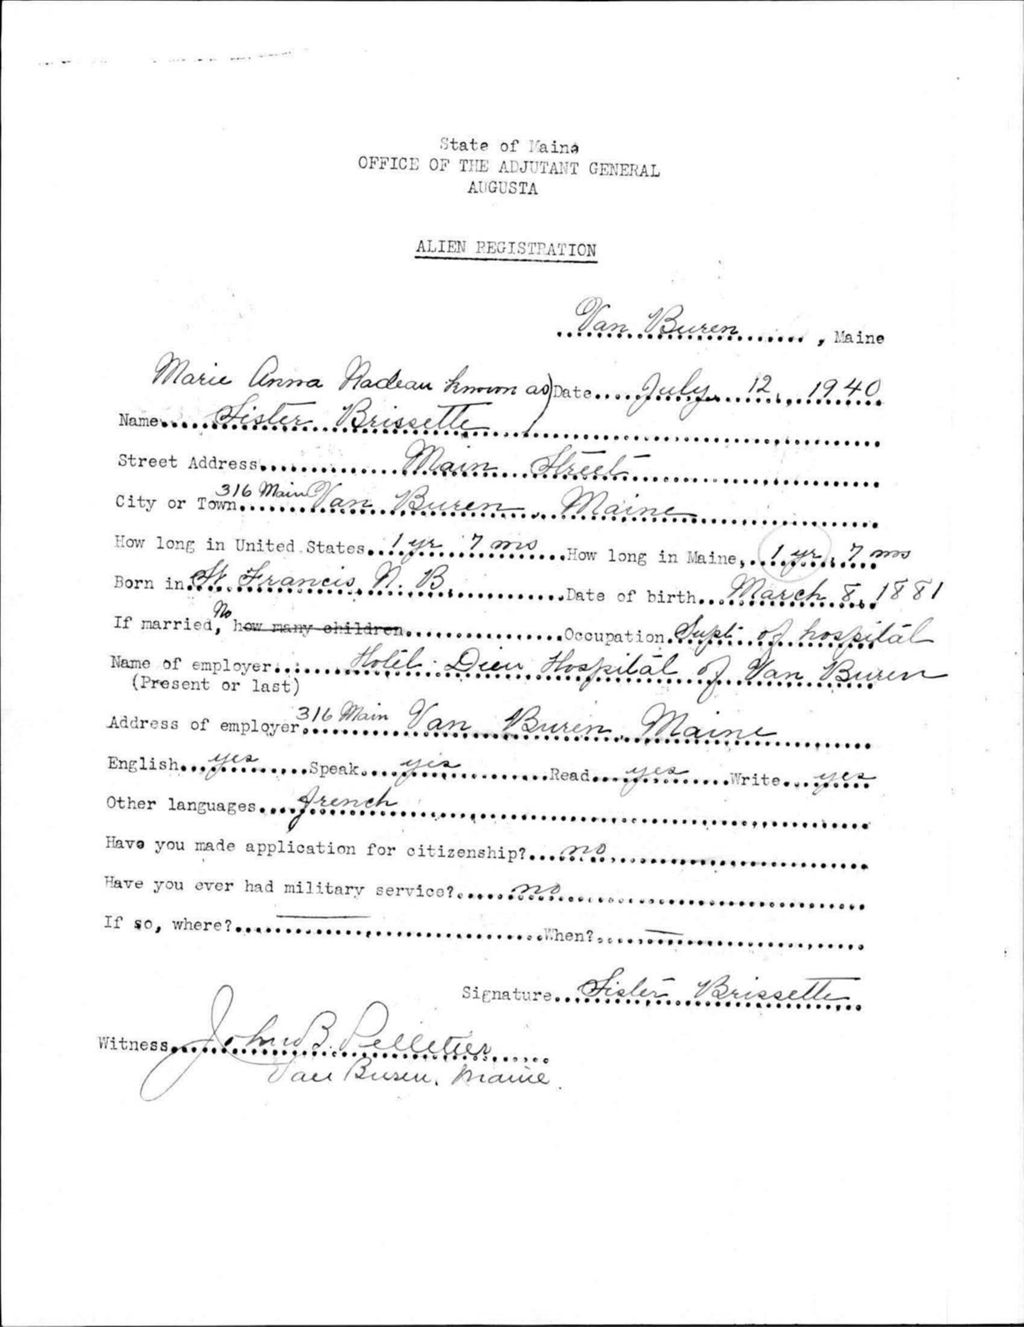 State of Maine
OFFICE OF THE ADJUTANT GENERAL
AUGUSTA
ALIEN REGISTRATION
Van Buren, Maine
Marie Anna Nadeau known as) Date July 12, 1940
Name Sister Brissette
Street Address Main Street
City or Town 316 Main Van Buren, Maine
How long in United States 1 yr. 7 mos How long in Maine, 1 yr. 7 mos
Born in St. Francis, N. B. Date of birth March 8, 1881
If married, No how many children Occupation Supt. of hospital
Name of employer Hotel-Dieu Hospital of Van Buren
(Present or last)
Address of employer 316 Main Van Buren, Maine
English yes Speak yes Read yes Write yes
Other languages french
Have you made application for citizenship? no
Have you ever had military service? no
If so, where? When?
Signature Sister Brissette
Witness John B. Pelletier
Van Buren, Maine.